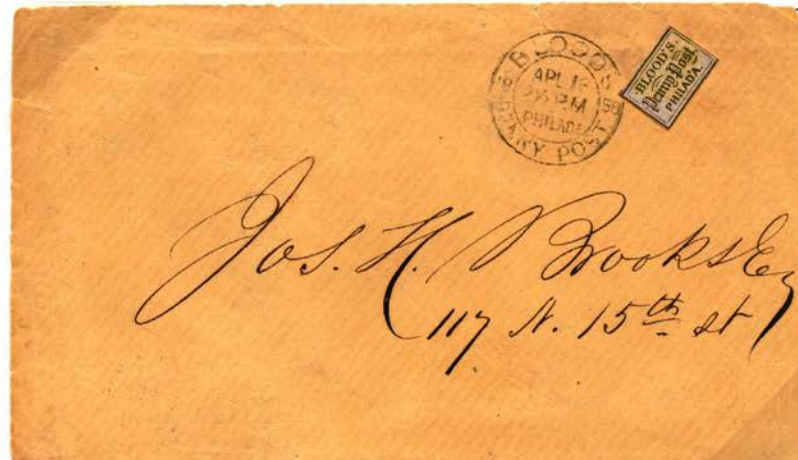 BLOOD'S
APL 16
P.M
PHILADA
PENNY POST
BLOOD'S
Penny Post
PHILAD'A.
Jos. H. Brooks Esq
117 N. 15th st